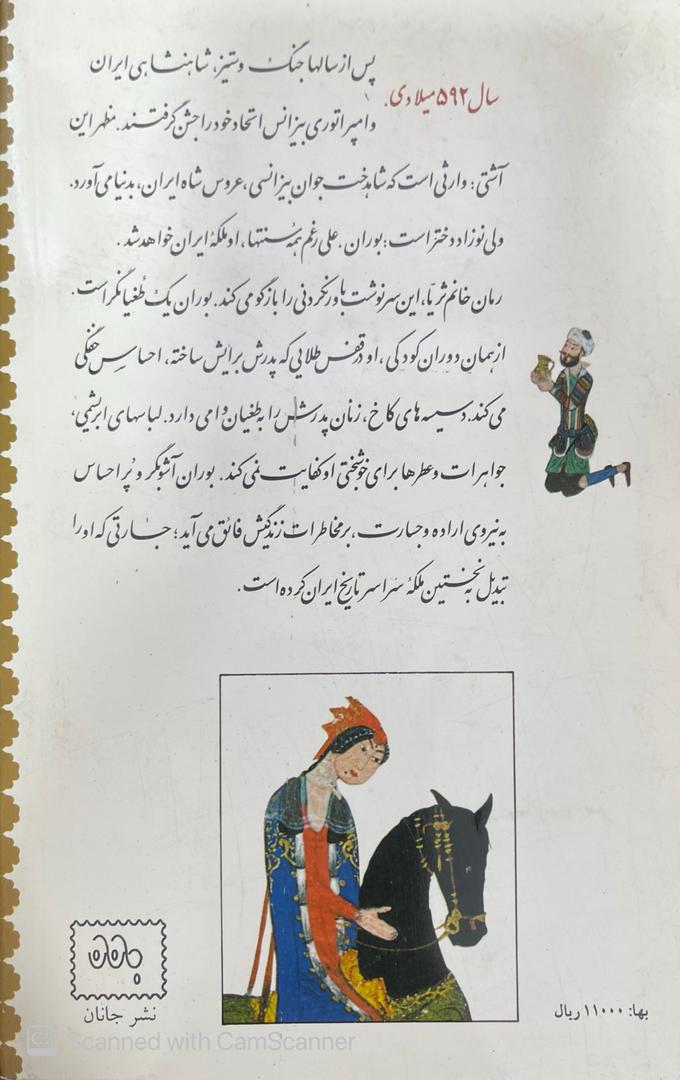 سال ۵۹۲ میلادی.
پس از سالها جنگ و ستیز، شاهنشاهی ایران
و امپراتوری بیزانس اتحاد خود را جشن گرفتند. مظهر این
آشتی: وارثی است که شاهدخت جوان بیزانسی، عروس شاه ایران، بدنیا می‌آورد.
ولی نوزاد دختر است: بوران. علی رغم همه سنتها، او ملکهٔ ایران خواهد شد.
رمان خانم ثریا، این سرنوشت باورنکردنی را بازگو می‌کند. بوران یک طغیانگر است.
از همان دوران کودکی، او در قفس طلایی که پدرش برایش ساخته، احساس خفگی
می‌کند. دسیسه‌های کاخ، زنان پدرش را به طغیان وامی دارد. لباسهای ابریشمی،
جواهرات و عطرها برای خوشبختی او کفایت نمی‌کند. بوران آشوبگر و پر احساس
به نیروی اراده و جسارت، بر مخاطرات زندگیش فائق می‌آید؛ جسارتی که او را
تبدیل به نخستین ملکهٔ سراسر تاریخ ایران کرده است.
جانان
نشر جانان
بها: ۱۱۰۰۰ ریال
CS Scanned with CamScanner